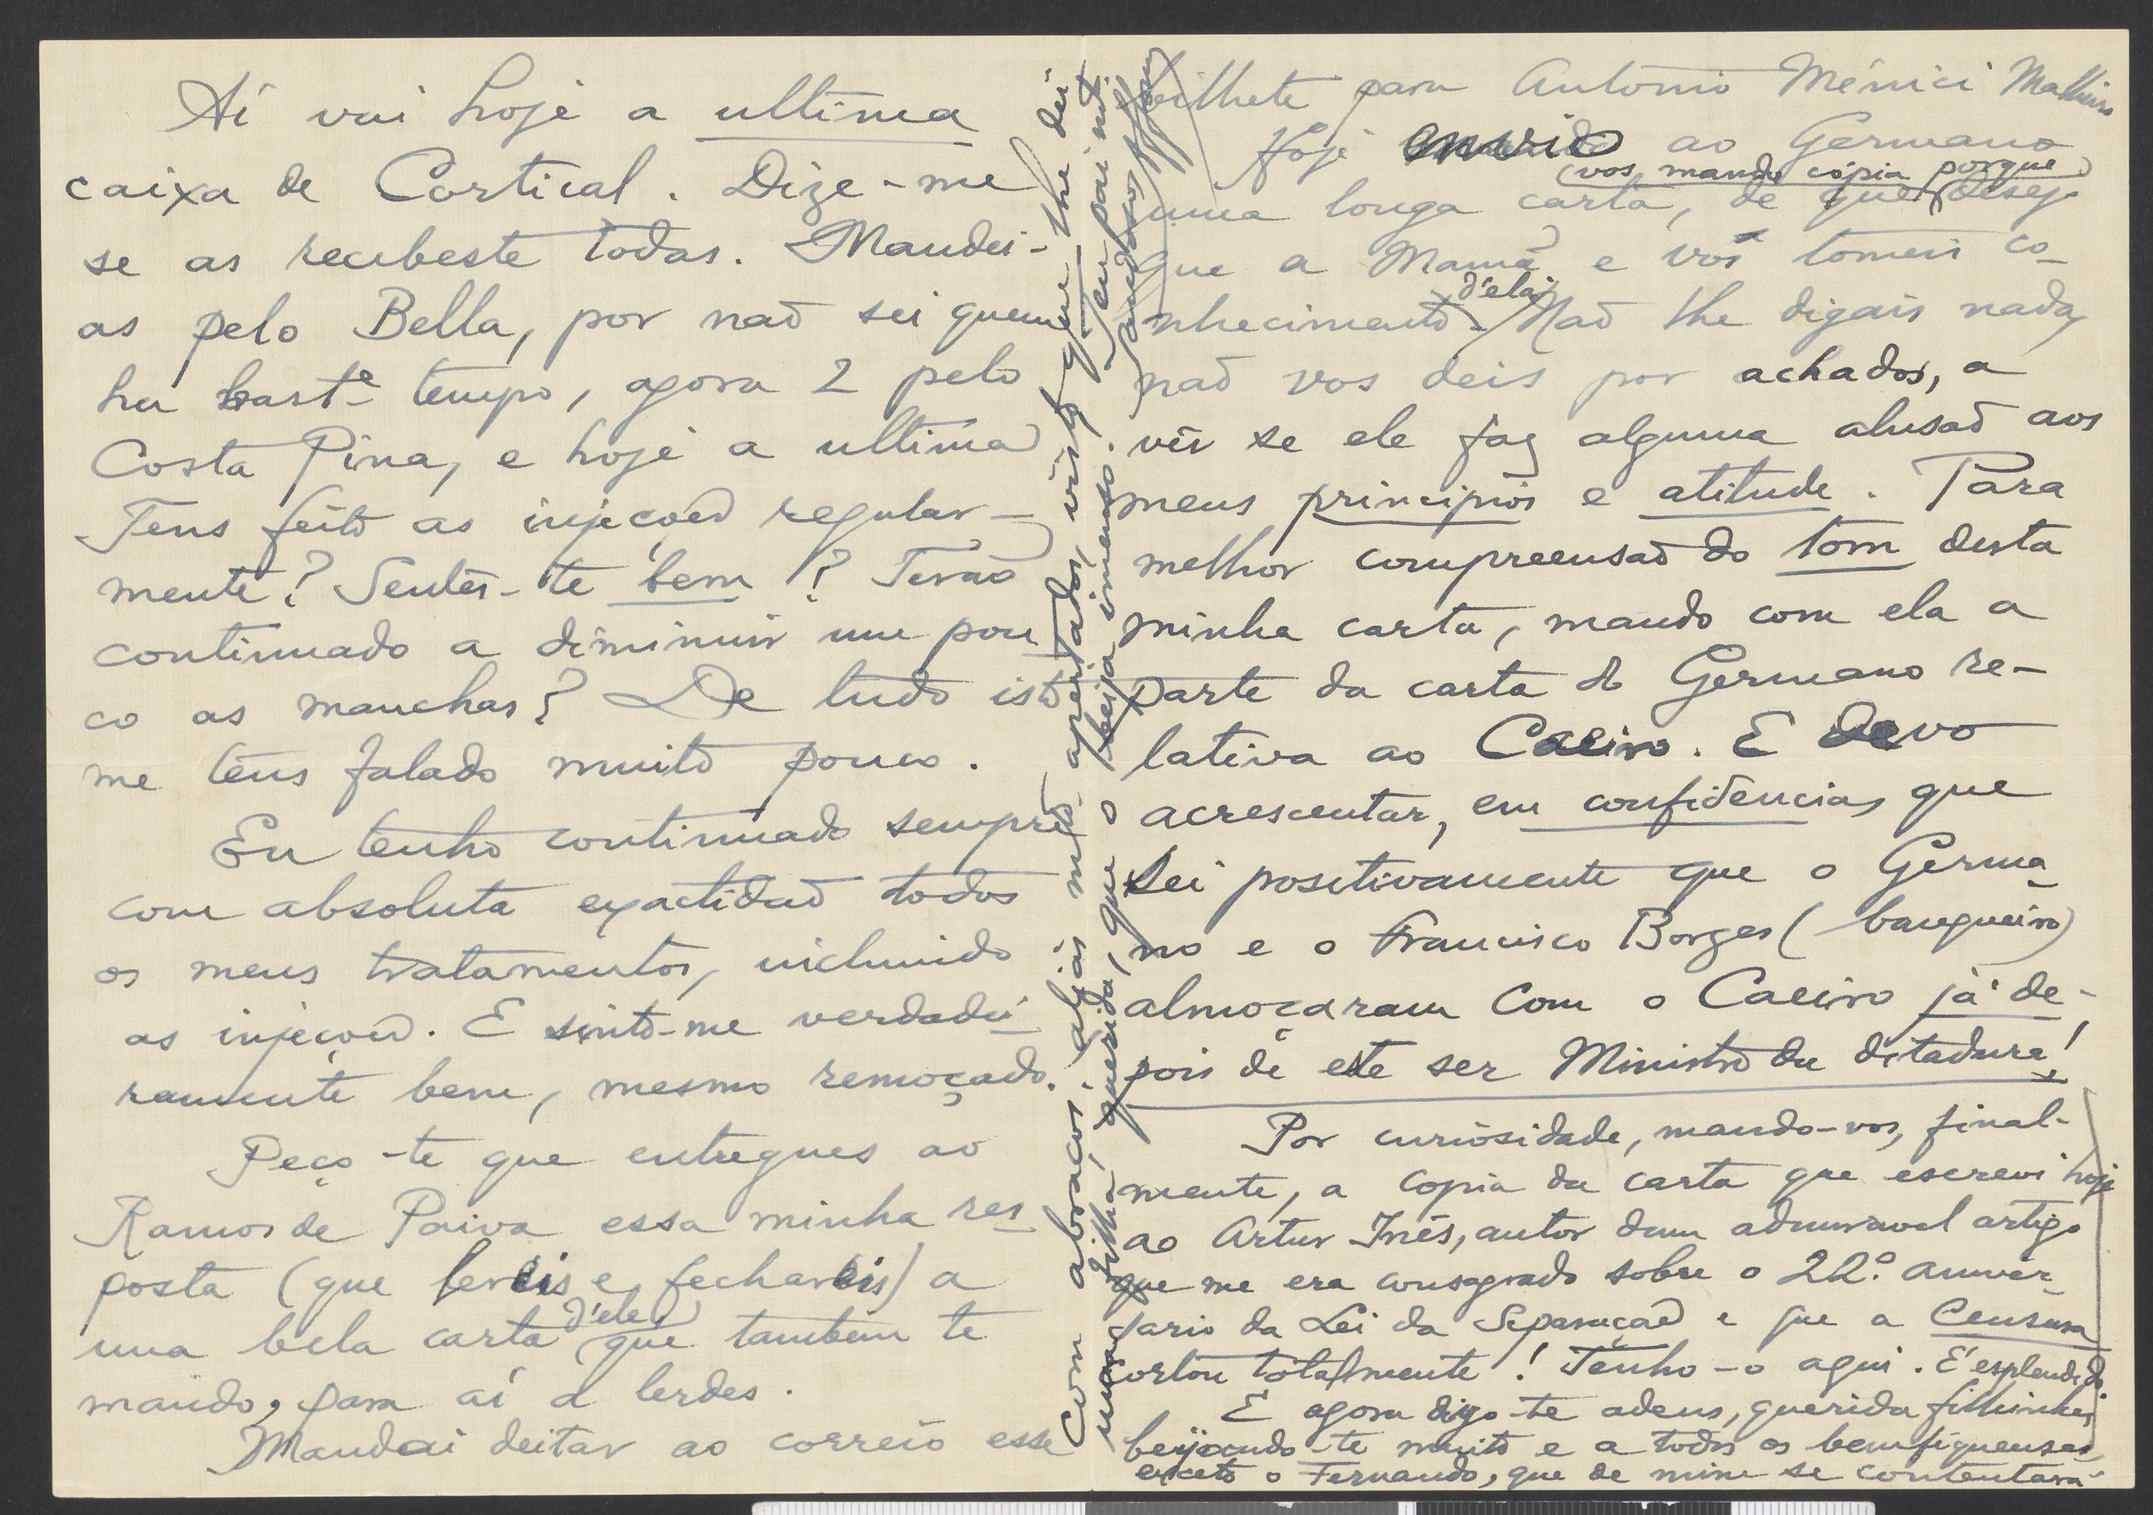 Aí vai hoje a ultima
caixa de Cortical. Dize-me
se as recebeste todas. Mandei-
as pelo Bella, por não sei quem
ha bast.e tempo, agora 2 pelo
Costa Pina, e hoje a ultima
Tens feito as injecções regular-
mente? Sentes-te bem? Terão
continuado a diminuir um pou
co as manchas? De tudo isto
me tens falado muito pouco.
Eu tenho continuado sempre
com absoluta exactidão todos
os meus tratamentos, incluindo
as injeções. E sinto-me verdadei-
ramente bem, mesmo remoçado.
Peço-te que entregues ao
Ramos de Paiva essa minha res-
posta (que lereis e fechareis) a
uma bela carta d'ele que tambem te
mando, para aí a lerdes.
Mandai deitar ao correio esse
bilhete para António Ménici Malheiro
Hoje envio ao Germano
uma longa carta, de que (vos mando cópia porque) desejo
que a Mamã e vós tomeis co-
nhecimento d'ela. Não lhe digais nada,
não vos deis por achados, a
vêr se ele faz alguma alusão aos
meus principios e atitude. Para
melhor compreensão do tom desta
minha carta, mando com ela a
parte da carta do Germano re-
lativa ao Caeiro. E devo
acrescentar, em confidencia, que
sei positivamente que o Germa-
no e o Francisco Borges (banqueiro)
almoçaram com o Caeiro já de-
pois de este ser Ministro da ditadura!
Por curiosidade, mando-vos, final-
mente, a copia da carta que escrevi hoje
ao Artur Inês, autor dum admiravel artigo
que me era consagrado sobre o 22.º aniver-
sario da Lei da Separação e que a Censura
cortou totalmente! Tenho-o aqui. É esplendido
E agora digo-te adeus, querida filhinha,
beijando-te muito e a todos os bemfiquenses,
exceto o Fernando, que de mim se contentará
com abraços, aliás m.to apertados, visto que lhe dei
uma filha querida, que o beija imenso. Teu pai m.to
saudoso Affonso